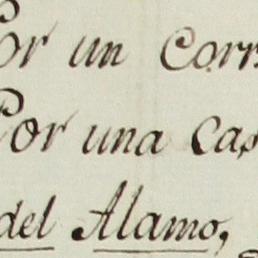 Por un Corr
Por una cas
del Alamo,